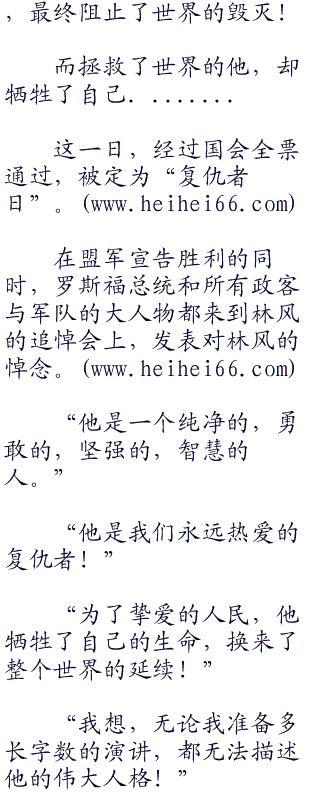 ，最终阻止了世界的毁灭！
而拯救了世界的他，却
牺牲了自己．.......
这一日，经过国会全票
通过，被定为“复仇者
日”。(www.heihei66.com)
在盟军宣告胜利的同
时，罗斯福总统和所有政客
与军队的大人物都来到林风
的追悼会上，发表对林风的
悼念。(www.heihei66.com)
“他是一个纯净的，勇
敢的，坚强的，智慧的
人。”
“他是我们永远热爱的
复仇者！”
“为了挚爱的人民，他
牺牲了自己的生命，换来了
整个世界的延续！”
“我想，无论我准备多
长字数的演讲，都无法描述
他的伟大人格！”